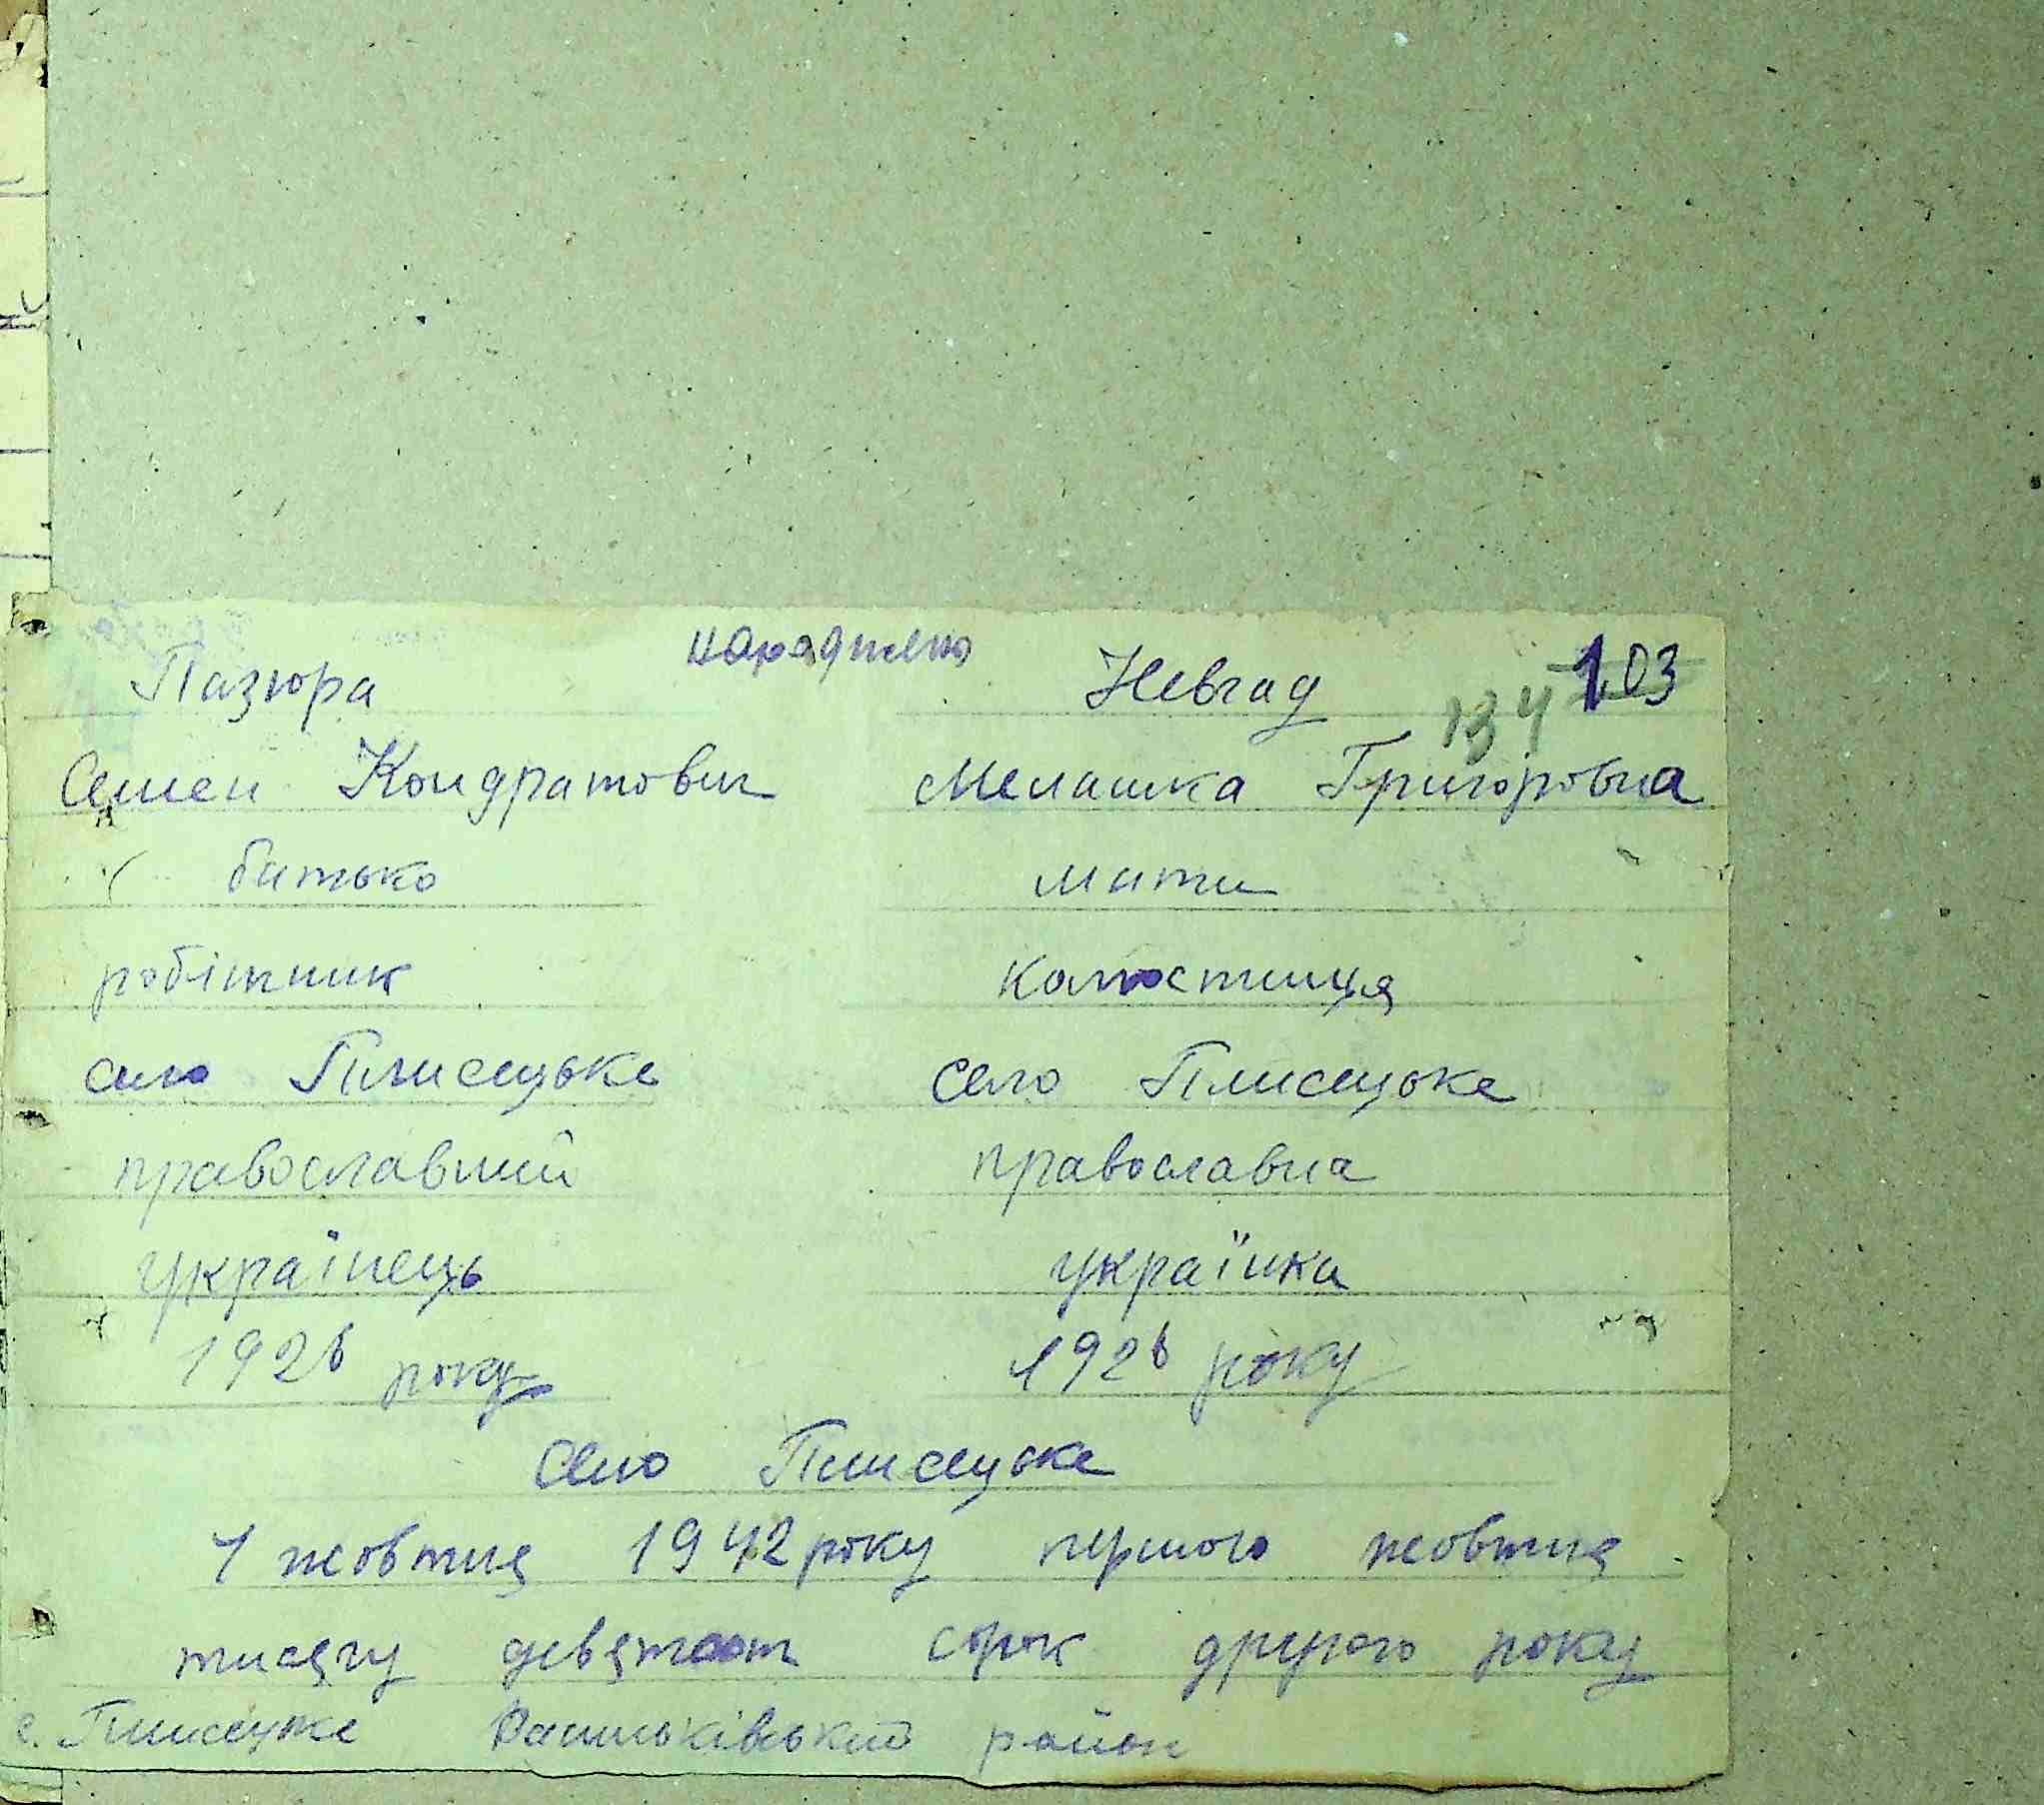 народжено
Пазюра Невгад 103
134
Семен Кондратович Мелашка Григоровна
батько мати
робітник
село Плисецьке село Плисецьке
православний православна
українець українка
1926 року 1926 року
село Плисецьке
1 жовтня 1942 року першого жовтня
тисячу девятсот сорок другого року
с. Плисецьке Васильківський район